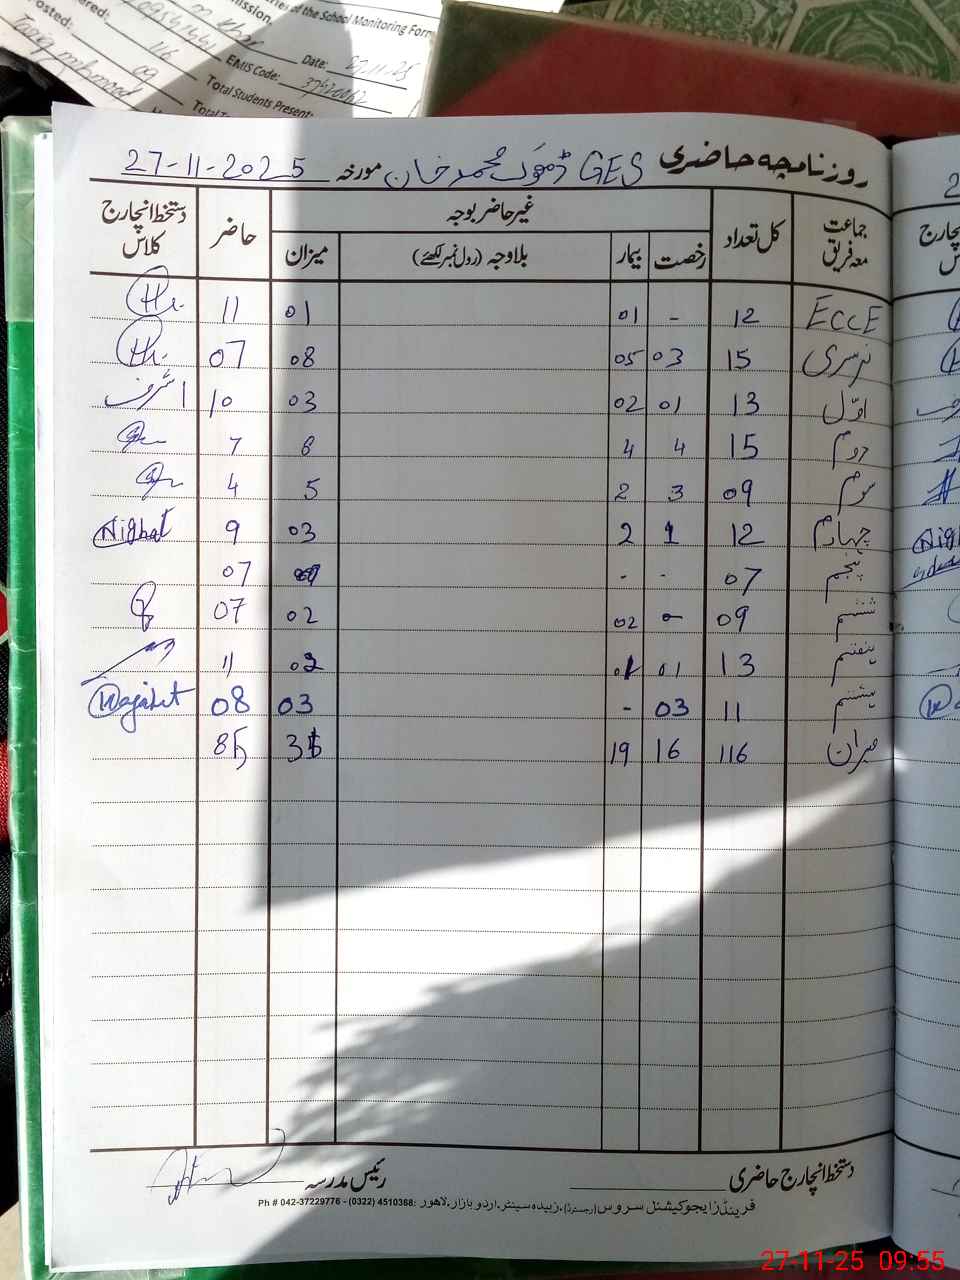 of the School Monitoring Form
mission.
Date: 27.11.25
EMIS Code: 37320062
Total Students Present:
116
09
Tariq mehmood
روزنامچہ حاضری GES ڈھوک محمد خان مورخہ 27-11-2025
جماعت معہ فریق کل تعداد غیر حاضر بوجہ حاضر دستخط انچارج کلاس
رخصت بیمار بلاوجہ (رول نمبر لکھئے) میزان
ECCE 12 - 01 01 11
نرسری 15 03 05 08 07
اوّل 13 01 02 03 10 اشرف
دوم 15 4 4 8 7
سوم 09 3 2 5 4
چہارم 12 1 2 03 9 Nighat
پنجم 07 - - 07
ششم 09 - 02 02 07
ہفتم 13 01 01 02 11
ہشتم 11 03 - 03 08 Wajahat
میزان 116 16 19 35 85
دستخط انچارج حاضری رئیس مدرسہ
فرینڈز ایجوکیشنل سروس (رجسٹرڈ)، زبیدہ سینٹر، اردو بازار، لاہور: Ph # 042-37229776 - (0322) 4510368
27-11-25 09:55